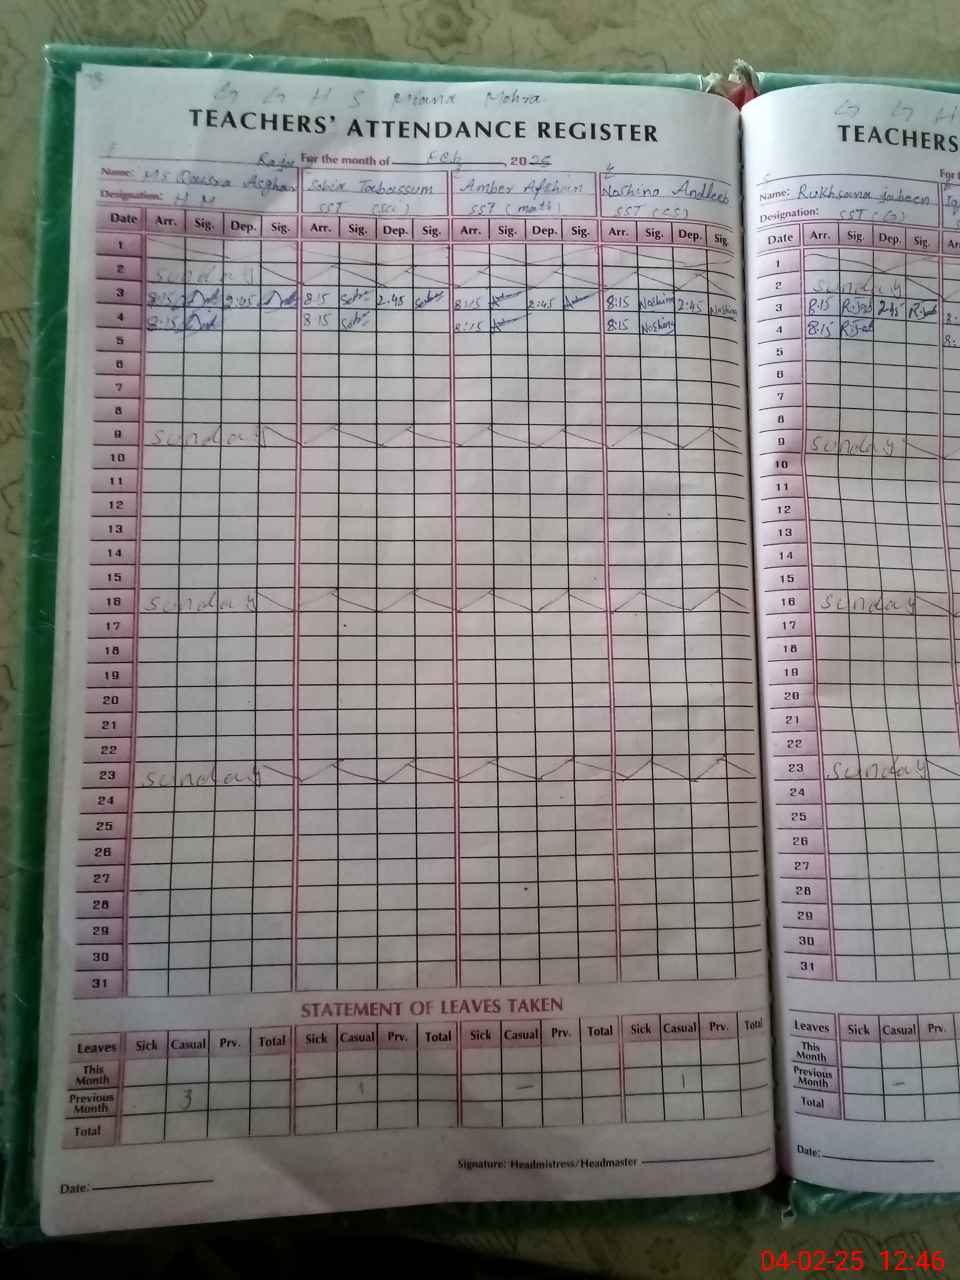 G G H S Miana Mohra
TEACHERS' ATTENDANCE REGISTER
For the month of Feb, 2025
Name: Ms Qausra Asghar Sobia Tabassum Amber Afshan Noshina Andleeb
Designation: H M SST (Sci) SST (math) SST (CS)
Date Arr. Sig. Dep. Sig. Arr. Sig. Dep. Sig. Arr. Sig. Dep. Sig. Arr. Sig. Dep. Sig.
1
2 Sunday
3 8:15 2:45 8:15 2:45 8:15 2:45 8:15 Noshina 2:45 Noshina
4 8:15 8:15 8:15 8:15 Noshina
5
6
7
8
9 Sunday
10
11
12
13
14
15
16 Sunday
17
18
19
20
21
22
23 Sunday
24
25
26
27
28
29
30
31
STATEMENT OF LEAVES TAKEN
Leaves Sick Casual Prv. Total Sick Casual Prv. Total Sick Casual Prv. Total Sick Casual Prv. Total
This Month
Previous Month 3 1 – 1
Total
Signature: Headmistress/Headmaster
Date:
G G H
TEACHERS
For t
Name: Rukhsana Jabeen
Designation: SST (G)
Date Arr. Sig. Dep. Sig. Ar
1
2 Sunday
3 8:15 2:45 8:
4 8:15 8:
5
6
7
8
9 Sunday
10
11
12
13
14
15
16 Sunday
17
18
19
20
21
22
23 Sunday
24
25
26
27
28
29
30
31
Leaves Sick Casual Prv.
This Month
Previous Month –
Total
Date:
04-02-25 12:46